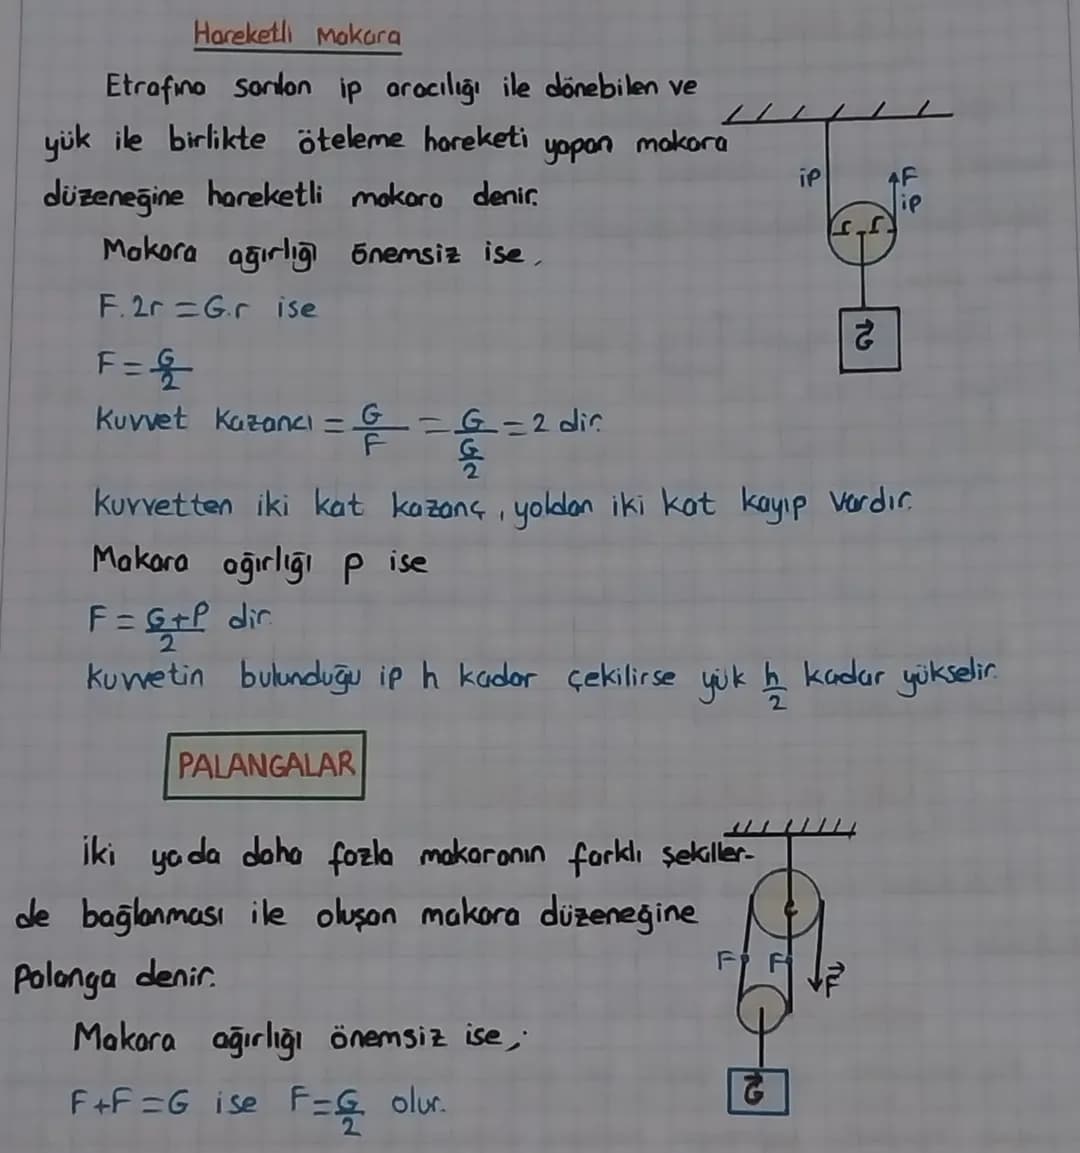 Hareketli Makara
Etrafına sarılan ip aracılığı ile dönebilen ve
yük ile birlikte öteleme hareketi yapan makara
düzeneğine hareketli makara denir.
ip
F
ip
r r
Makara ağırlığı önemsiz ise,
F.2r = G.r ise
F = G/2
G
Kuvvet Kazancı = G/F = G/(G/2) = 2 dir.
Kuvvetten iki kat kazanç, yoldan iki kat kayıp vardır.
Makara ağırlığı P ise
F = (G+P)/2 dir.
Kuvvetin bulunduğu ip h kadar çekilirse yük h/2 kadar yükselir.
PALANGALAR
İki yada daha fazla makaranın farklı şekiller-
de bağlanması ile oluşan makara düzeneğine
Palanga denir.
F F F
Makara ağırlığı önemsiz ise;
G
F+F=G ise F=G/2 olur.